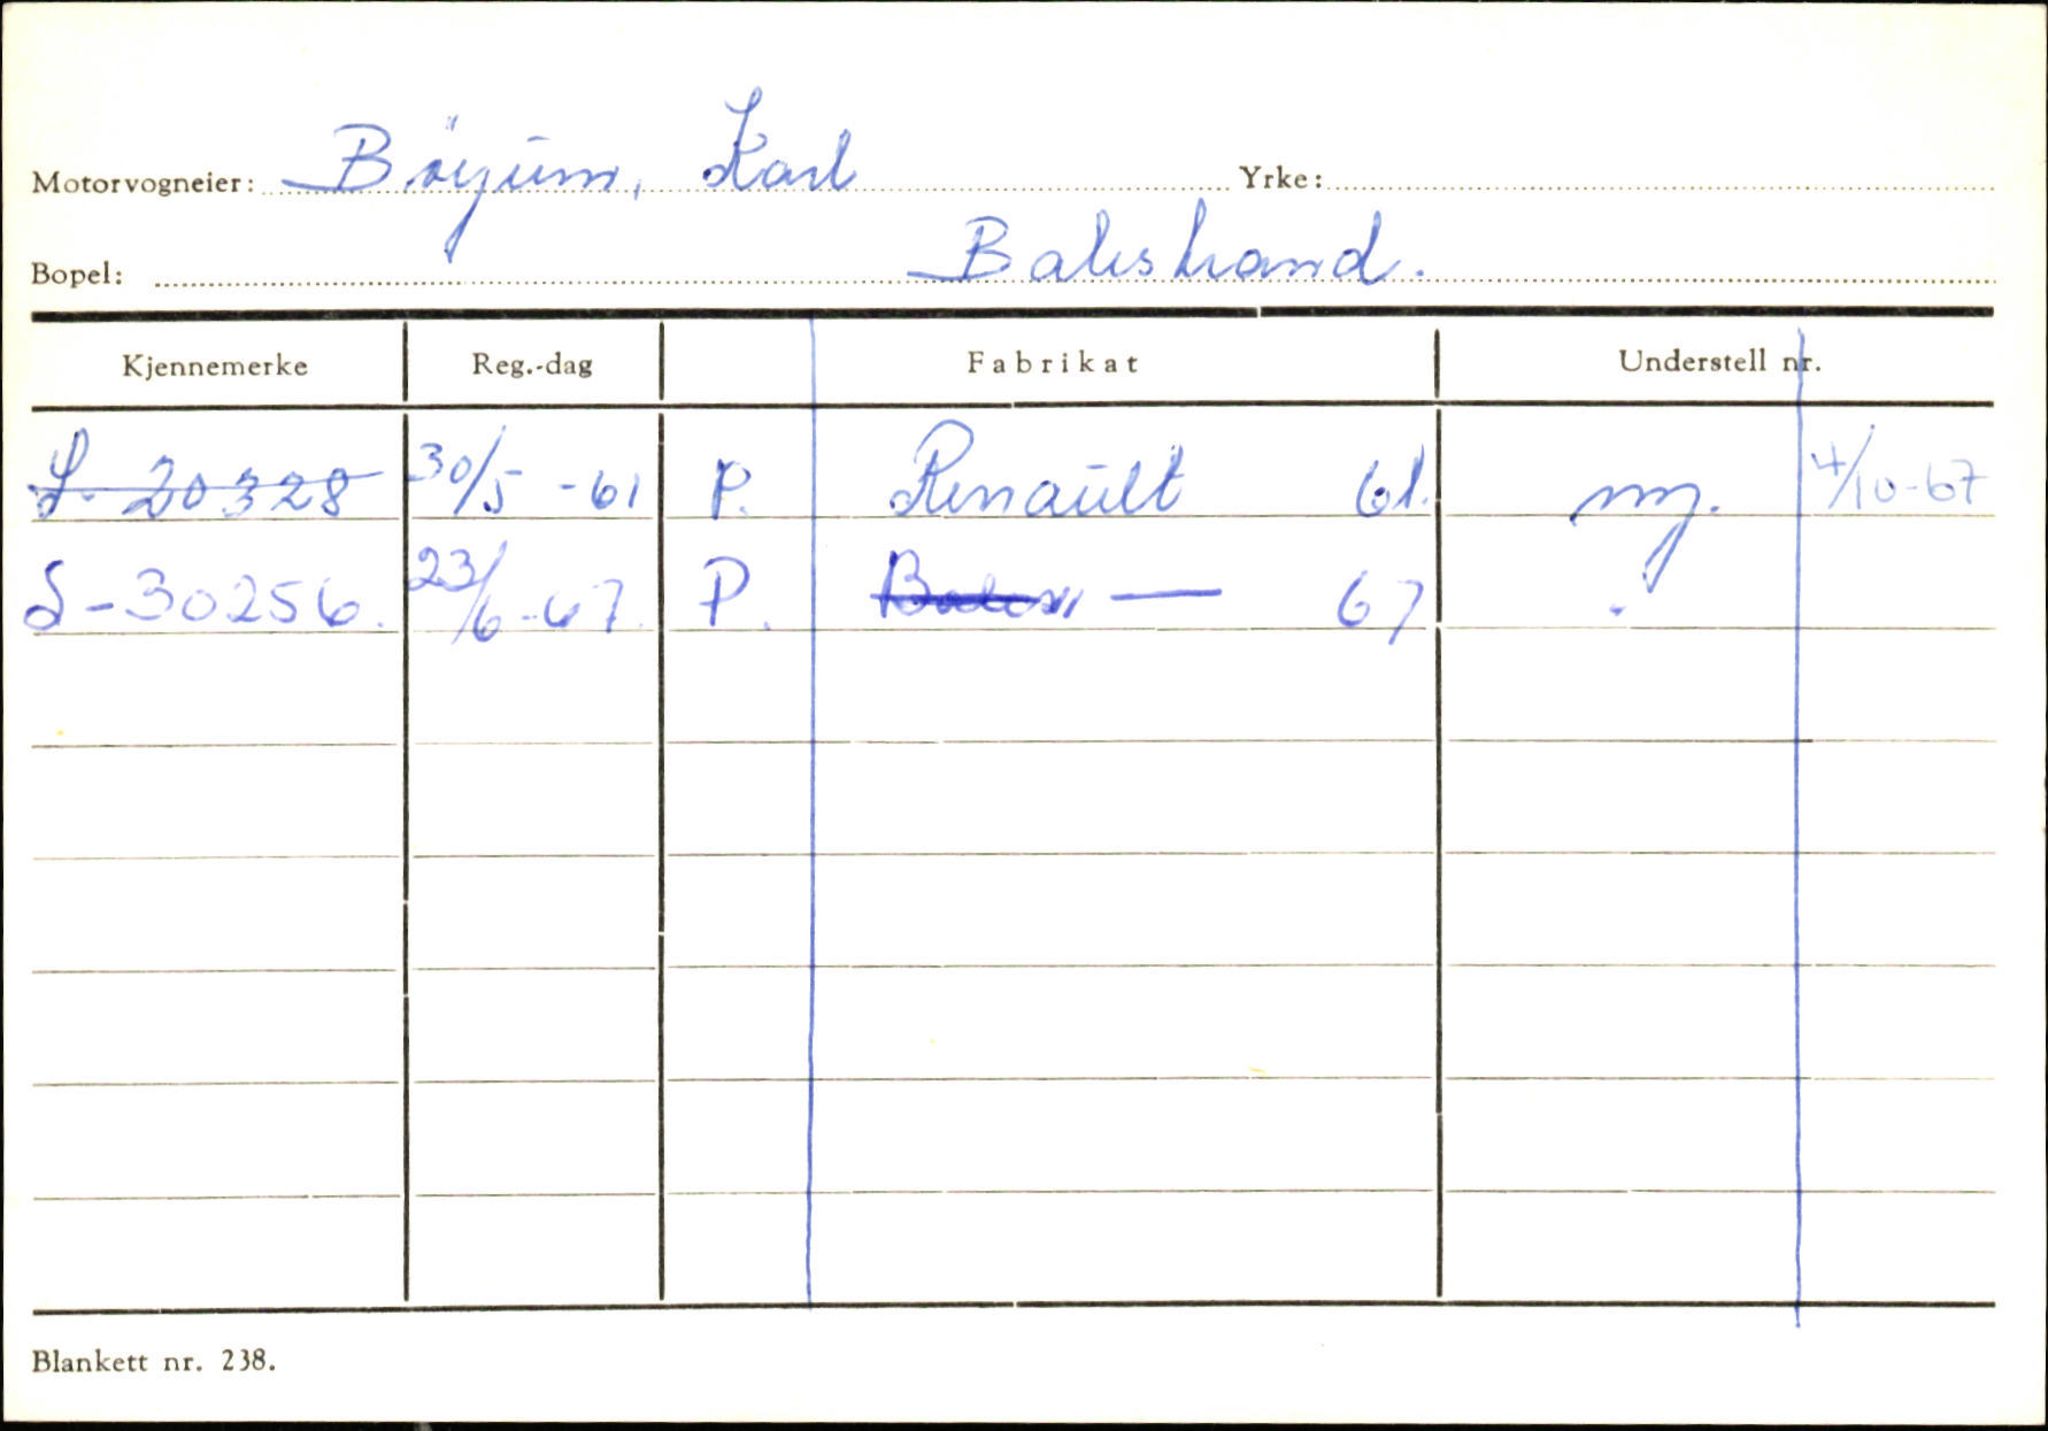 Motorvogneier: Böyum, Karl Yrke:
Bopel: Balestrand.
Kjennemerke Reg.-dag Fabrikat Understell nr.
S-20328 30/5-61 P. Renault 61. ny. 4/10-67
S-30256. 23/6-67. P. — 67
Blankett nr. 238.